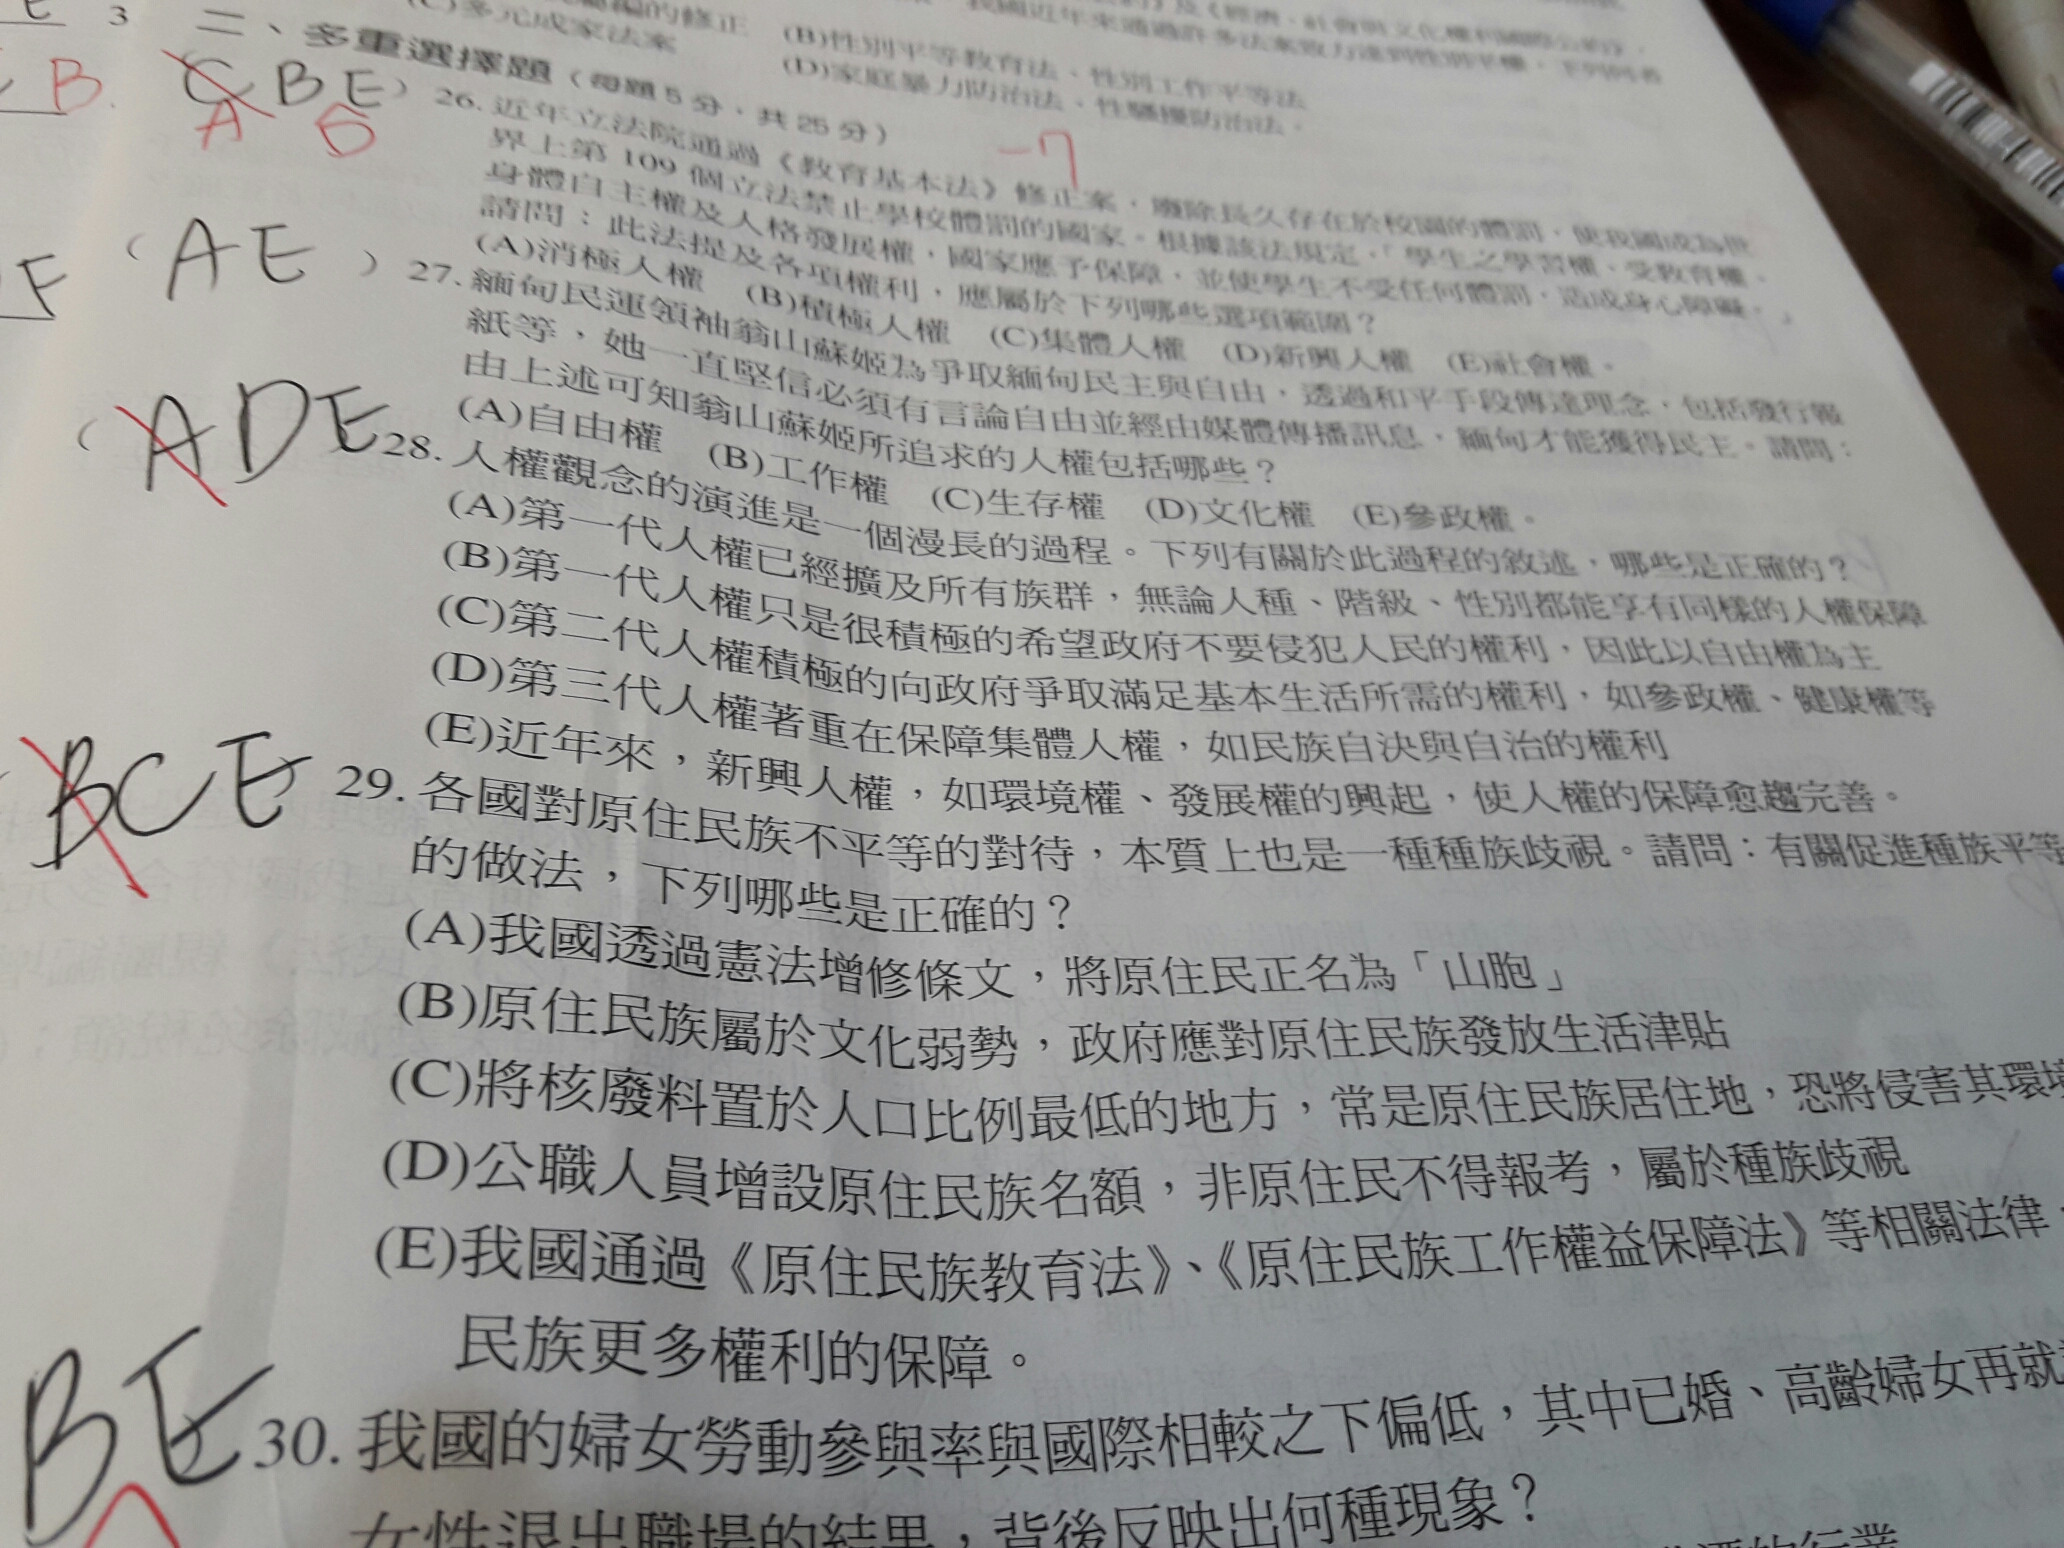 (C)多元成家法案
(B)性別平等教育法、性別工作平等法
(D)家庭暴力防治法、性騷擾防治法。
3
二、多重選擇題（每題5分，共25分）
B.
C B E
A D
-7
26. 近年立法院通過《教育基本法》修正案，廢除長久存在於校園的體罰，使我國成為世
界上第 109 個立法禁止學校體罰的國家。根據該法規定，「學生之學習權、受教育權、
身體自主權及人格發展權，國家應予保障，並使學生不受任何體罰，造成身心障礙。」
請問：此法提及各項權利，應屬於下列哪些選項範圍？
(A)消極人權 (B)積極人權 (C)集體人權 (D)新興人權 (E)社會權。
（ A E ）
27. 緬甸民運領袖翁山蘇姬為爭取緬甸民主與自由，透過和平手段傳達理念，包括發行報
紙等，她一直堅信必須有言論自由並經由媒體傳播訊息，緬甸才能獲得民主。請問：
由上述可知翁山蘇姬所追求的人權包括哪些？
(A)自由權 (B)工作權 (C)生存權 (D)文化權 (E)參政權。
（ A D E
28. 人權觀念的演進是一個漫長的過程。下列有關於此過程的敘述，哪些是正確的？
(A)第一代人權已經擴及所有族群，無論人種、階級、性別都能享有同樣的人權保障
(B)第一代人權只是很積極的希望政府不要侵犯人民的權利，因此以自由權為主
(C)第二代人權積極的向政府爭取滿足基本生活所需的權利，如參政權、健康權等
(D)第三代人權著重在保障集體人權，如民族自決與自治的權利
(E)近年來，新興人權，如環境權、發展權的興起，使人權的保障愈趨完善。
B C E
29. 各國對原住民族不平等的對待，本質上也是一種種族歧視。請問：有關促進種族平等
的做法，下列哪些是正確的？
(A)我國透過憲法增修條文，將原住民正名為「山胞」
(B)原住民族屬於文化弱勢，政府應對原住民族發放生活津貼
(C)將核廢料置於人口比例最低的地方，常是原住民族居住地，恐將侵害其環境
(D)公職人員增設原住民族名額，非原住民不得報考，屬於種族歧視
(E)我國通過《原住民族教育法》、《原住民族工作權益保障法》等相關法律，
民族更多權利的保障。
B E
30. 我國的婦女勞動參與率與國際相較之下偏低，其中已婚、高齡婦女再就
女性退出職場的結果，背後反映出何種現象？